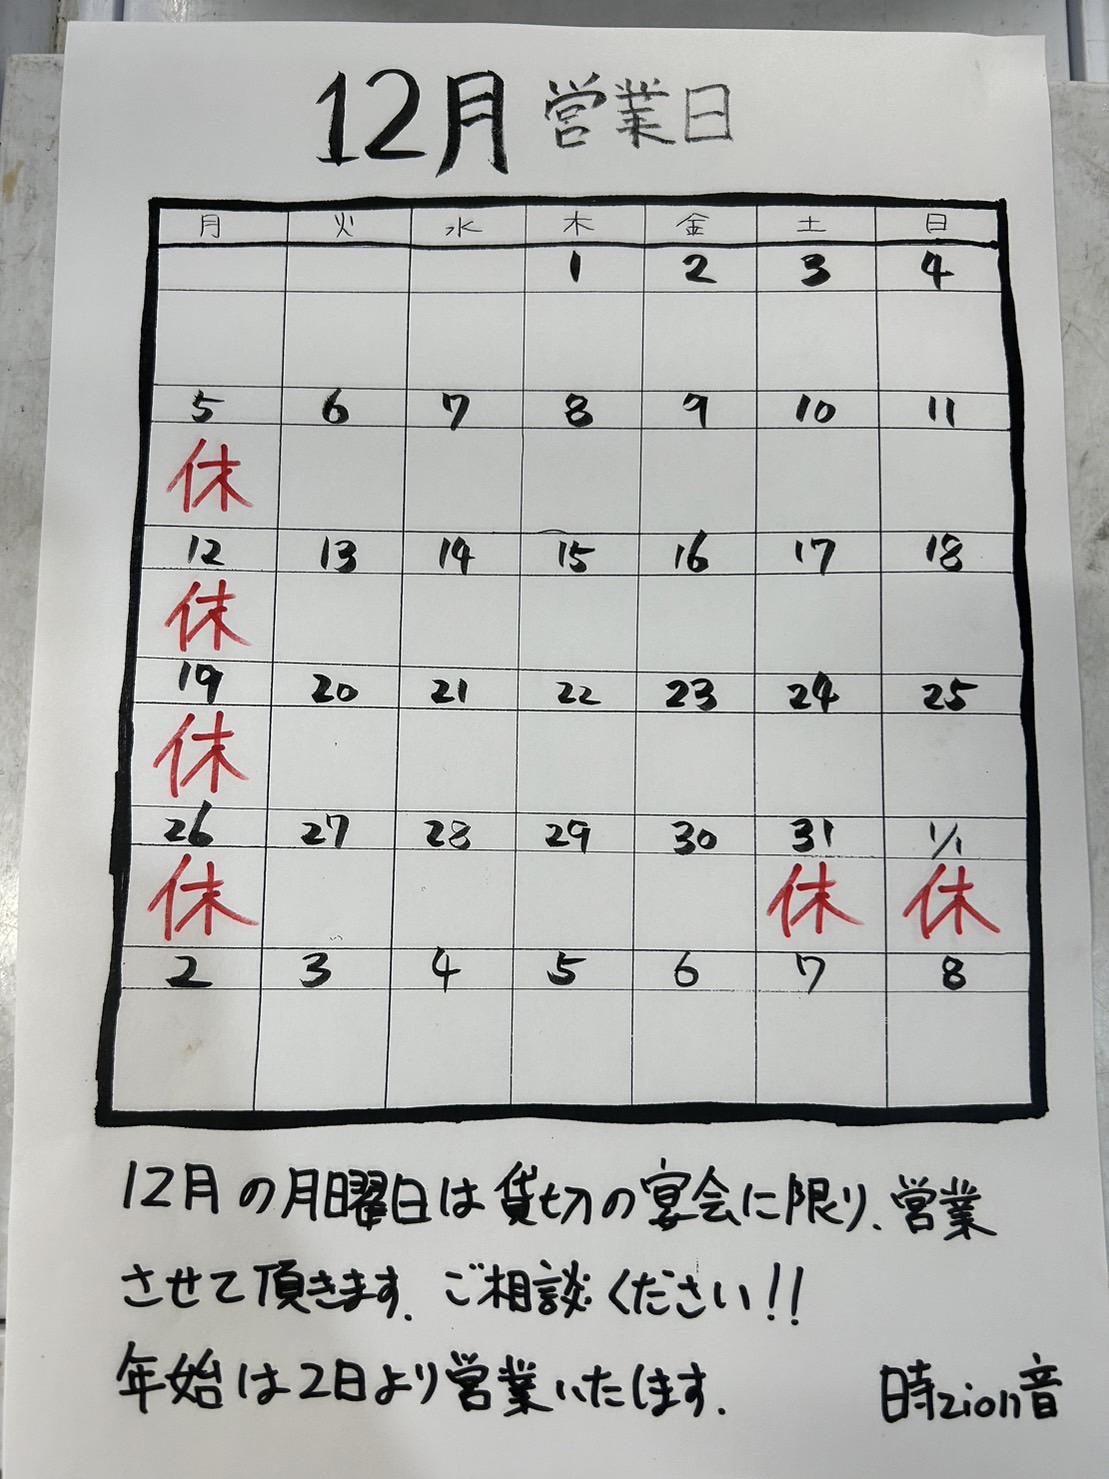 12月 営業日
月 火 水 木 金 土 日
1 2 3 4
5 6 7 8 9 10 11
休
12 13 14 15 16 17 18
休
19 20 21 22 23 24 25
休
26 27 28 29 30 31 1/1
休 休 休
2 3 4 5 6 7 8
12月の月曜日は貸切の宴会に限り、営業
させて頂きます。ご相談ください!!
年始は2日より営業いたします。
時zion音